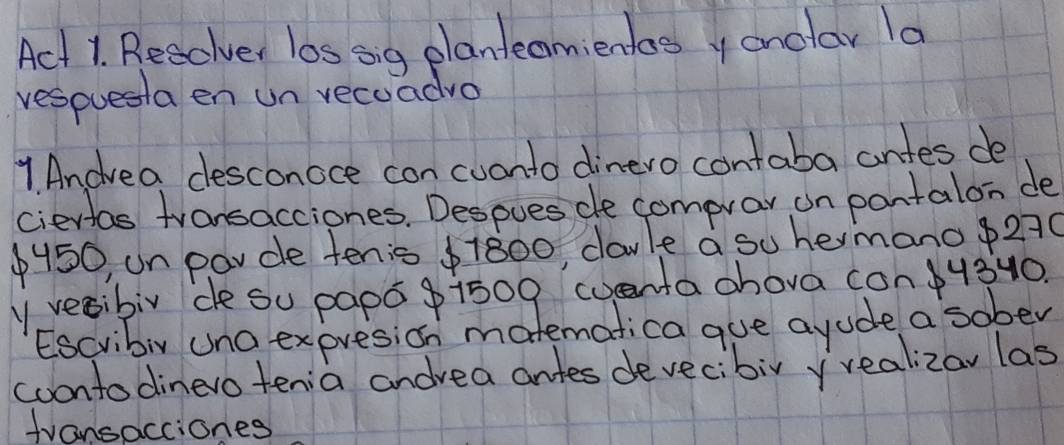 Act 1. Resolver los sig planteamientos y anotar la
respuesta en un recuadro
1. Andrea desconoce con cuanto dinero contaba antes de
ciertas transacciones. Despues de comprar un pantalón de
$450, un par de tenis $1800, darle a su hermano $270
y recibir de su papá $1500 cuenta ahora con $4340.
Escribir una expresión matematica que ayude a saber
cuanto dinero tenia andrea antes de recibir y realizar las
transacciones